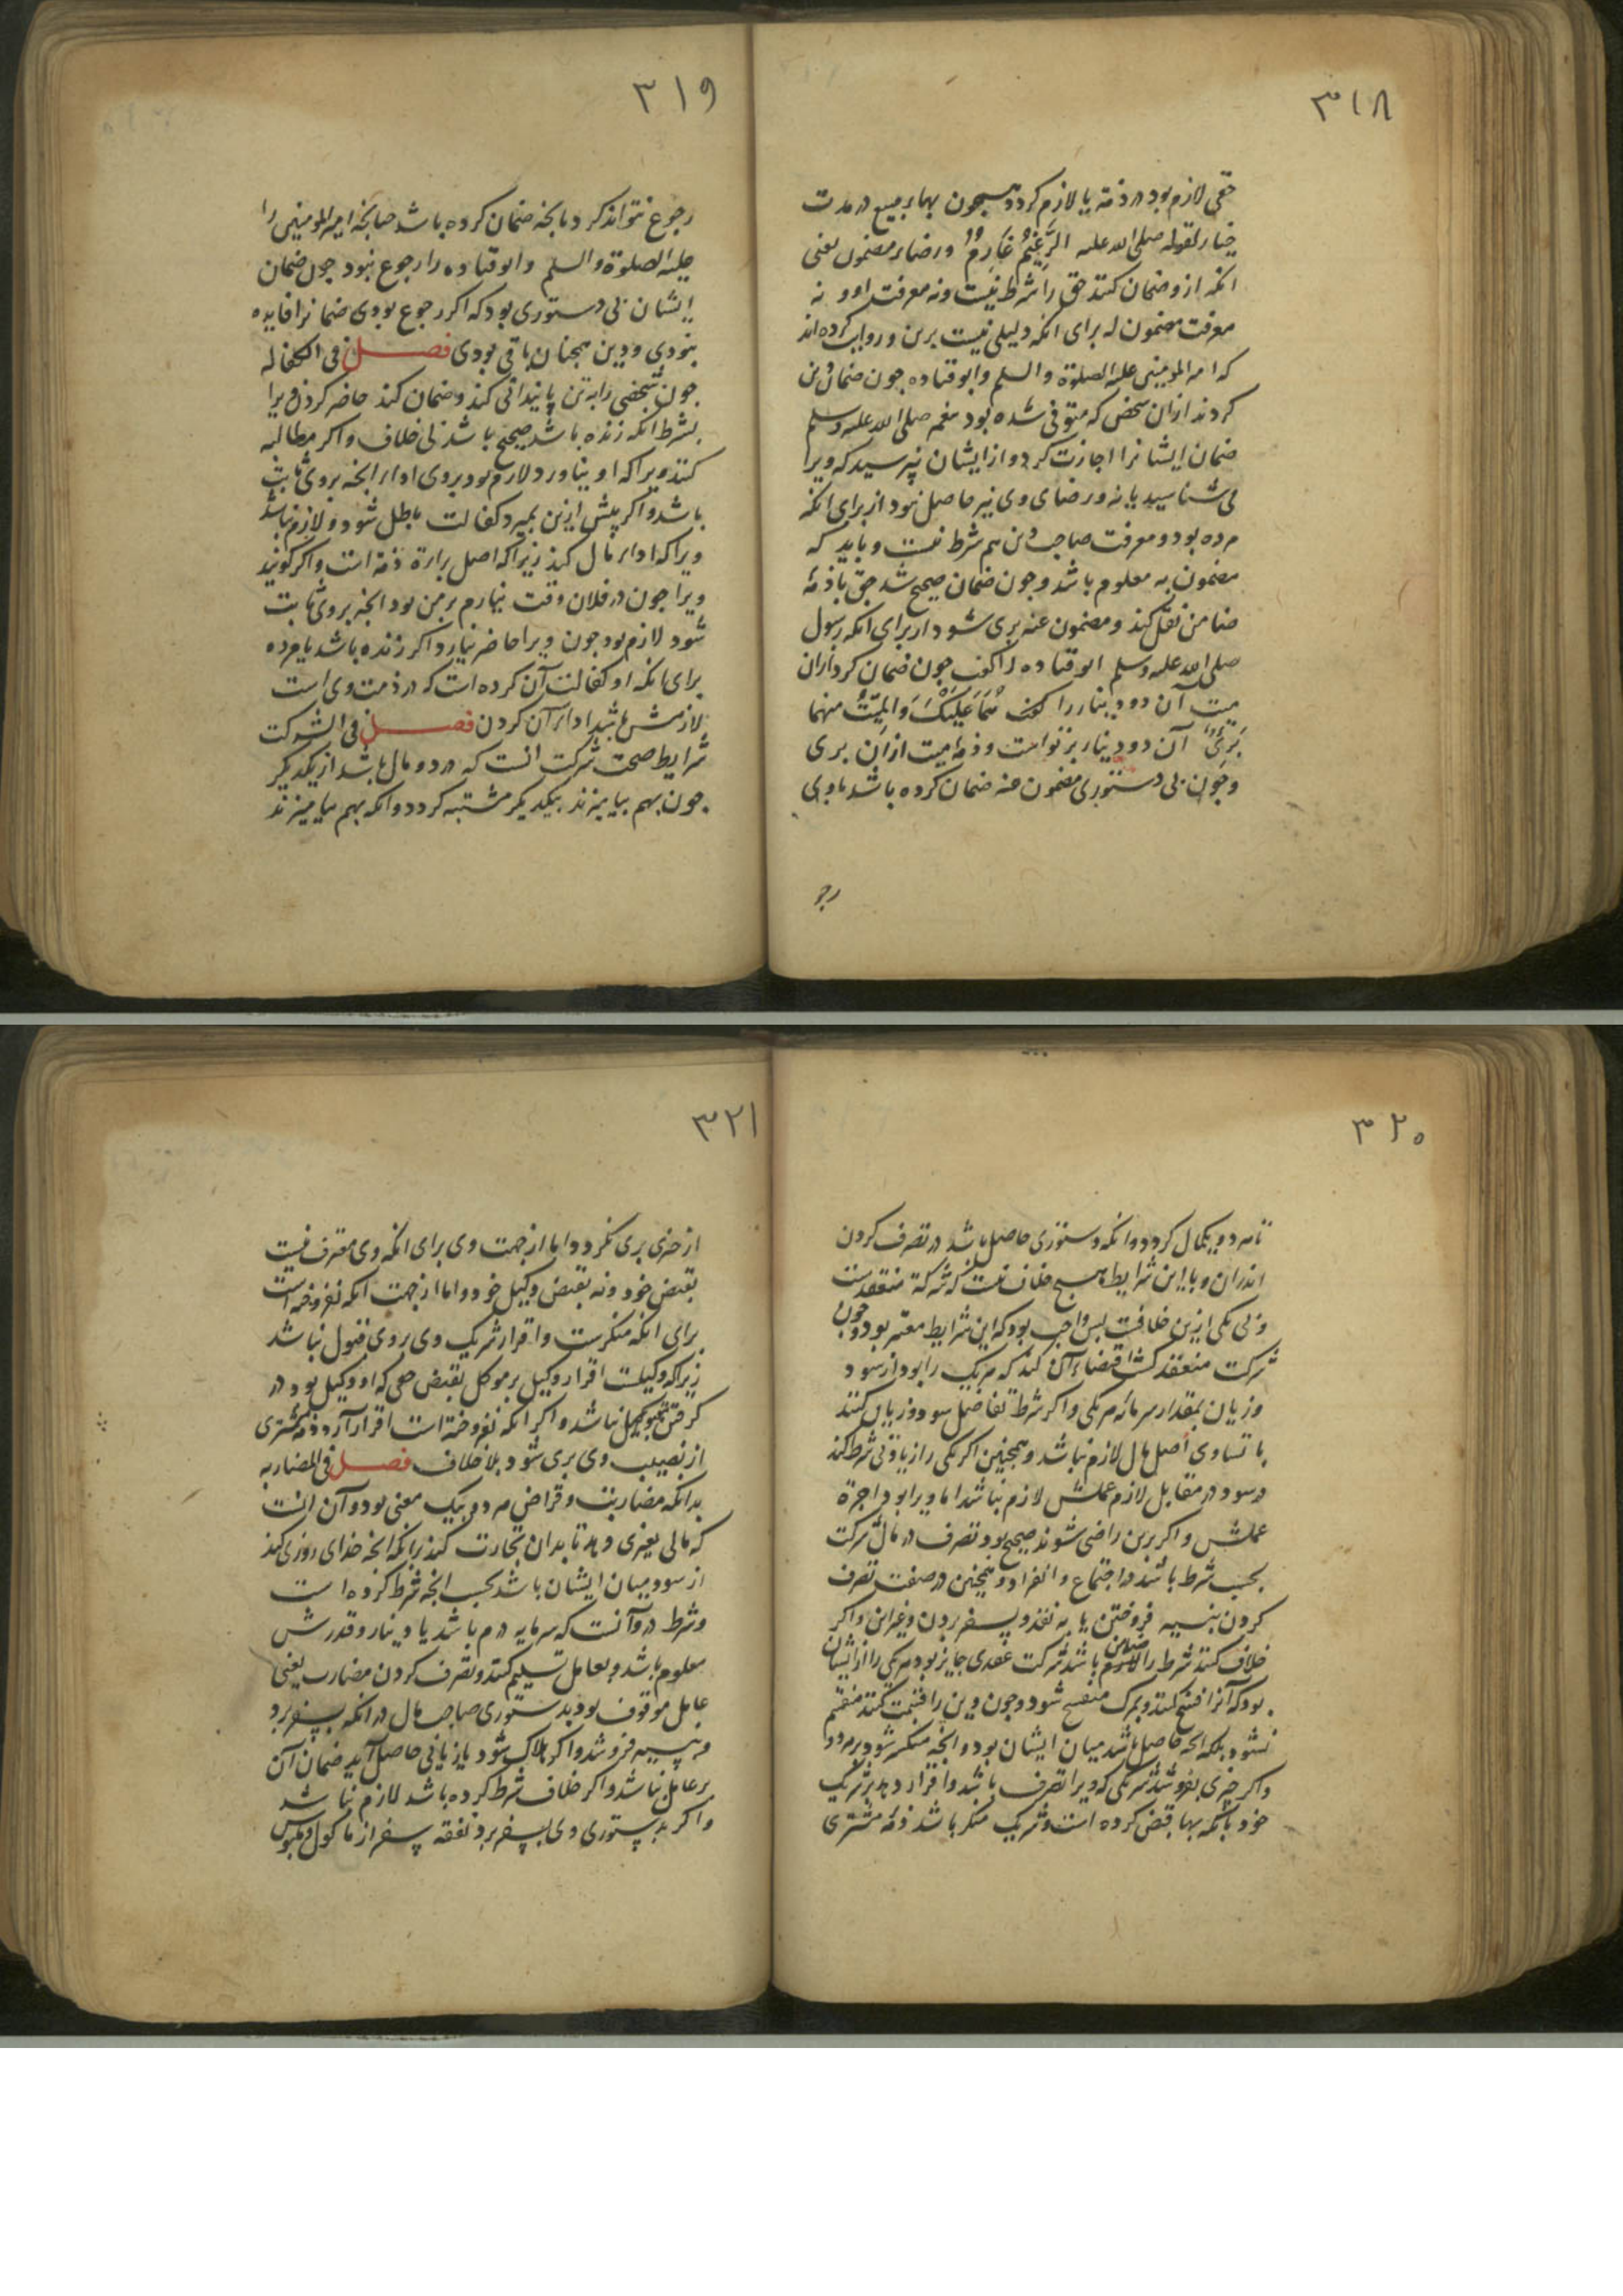 ٣١٨
حقی لازم بود در ذمة یا لازم کردد همچون بهاء مبیع در مدت
خیار لقوله صلی الله علیه الزَّعِیْمُ غَارِمٌ و رضاء مضمون یعنی
انکه ازو ضمان کنند حق را شرط نیست ونه معرفت او و نه
معرفت مضمون له برای انکه دلیلی نیست برین و روایت کرده‌اند
که امیرالمومنین علیه الصلوة والسلم وابو قتاده جون ضمان دین
کردند ازان شخص که متوفی شده بود پیغمبر صلی الله علیه وسلم
ضمان ایشانرا اجازت کرد و از ایشان نپرسید که ویرا
می شناسید یا نه و رضای وی نیز حاصل نبود از برای انکه
مرده بود و معرفت صاحب دین هم شرط نیست و باید که
مضمون به معلوم باشد و جون ضمان صحیح شد حق با ذمهٔ
ضامن نقل کند و مضمون عنه بری شود از برای انکه رسول
صلی الله علیه وسلم ابو قتاده را کفت جون ضمان کرد ازان
میت آن دو دینار را کفت هُمَا عَلَیْکَ وَالمَیِّتُ منهما
بَرِیٌٔ آن دو دینار بر تو است و ذمهٔ میت ازان بری
و جون بی دستوری مضمون عنه ضمان کرده باشد با وی
رجو
٣١٩
رجوع نتواند کرد بانجه ضمان کرده باشد جنانجه امیرالمومنین را
علیه الصلوة والسلم وابو قتاده را رجوع نبود جون ضمان
ایشان بی دستوری بود که اکر رجوع بودی ضمانرا فایده
نبودی و دین همجنان باقی بودی فصل فی الکفاله
جون شخصی را به تن پایندانی کند و ضمان کند حاضر کردن ویرا
بشرط انکه زنده باشد صحیح باشد بی خلاف واکر مطالبه
کنند ویرا که او بیاورد لازم بود بر وی اداء انجه بر وی ثابت
باشد واکر پیش ازین بمیرد کفالت باطل شود و لازم نباشد
ویرا که اداء مال کند زیرا که اصل براءة ذمه است واکر کویند
ویرا جون در فلان وقت نیارم بر من بود انجه بر وی ثابت
شود لازم بود جون ویرا حاضر نیارد اکر زنده باشد یا مرده
برای انکه او کفالت آن کرده است که در ذمت وی است
لازمش باشد اداء آن کردن فصل فی الشرکت
شرایط صحت شرکت انست که در دو مال باشد از یکدیکر
جون بهم بیامیزند بیکدیکر مشتبه کردد وانکه بهم بیامیزند
٣٢٠
تا هر دو یکمال کردد وانکه دستوری حاصل باشد در تصرف کردن
اندران و با این شرایط هیچ خلاف نیست که شرکة منعقد است
و بی یکی ازین خلافست پس واجب بود که این شرایط معتبر بود و جون
شرکت منعقد کشت اقتضاء آن کند که هر یک را بود از سود
و زیان بمقدار سرمایهٔ هر یکی واکر شرط تفاضل سود و زیان کنند
با تساوی اصل مال لازم نباشد و همچنین اکر یکی را زیادتی شرط کند
در سود در مقابل لازم عملش لازم نباشد اما ویرا بود اجرة
عملش واکر برین راضی شوند صحیح بود و تصرف در مال شرکت
بحسب شرط باشد در اجتماع و انفراد و همچنین در صفت تصرف
کردن بنسیه فروختن یا به نقد و بسفر بردن و غیر این واکر
خلاف کنند شرط را ضامن باشد شرکت عقدی جایز بود هر یکی را از ایشان
بود که آنرا فسخ کنند و بمرک منفسخ شود و جون دین را قسمت کنند منقسم
نشود بلکه انجه حاصل باشد میان ایشان بود و انجه منکسر شود بر هر دو
واکر جیزی بفروشد شریکی که ویرا تصرف باشد و اقرار دهد بر شریک
خود بانکه بها قبض کرده است و شریک منکر باشد ذمهٔ مشتری
٣٢١
از جیزی بری نکردد اما از جهت وی برای انکه وی معترف نیست
بقبض خود ونه بقبض وکیل خود و اما از جهت انکه بفروخته است
برای انکه منکرست و اقرار شریک وی بر وی قبول نباشد
زیرا که وکیلست اقرار وکیل بر موکل بقبض حقی که او وکیل بود در
کرفتن نباشد واکر انکه نفروخته است اقرار آرد ذمهٔ مشتری
از نصیب وی بری شود بلا خلاف فصل فی المضاربه
بدانکه مضاربت و قراض هر دو بیک معنی بود و آن انست
که مالی بغیری دهد تا بدان تجارت کند بر انکه انجه خدای روزی کند
از سود میان ایشان باشد بحسب انجه شرط کرده است
و شرط در و آنست که سرمایه درم باشد یا دینار و قدرش
معلوم باشد و بعامل تسلیم کنند و تصرف کردن مضارب یعنی
عامل موقوف بود بدستوری صاحب مال در انکه بسفر برد
و بنسیه فروشد واکر هلاک شود یا زیانی حاصل آید ضمان آن
بر عامل نباشد واکر خلاف شرط کرده باشد لازم نباشد
واکر بدستوری وی بسفر برد نفقه سفر از ماکول و ملبوس